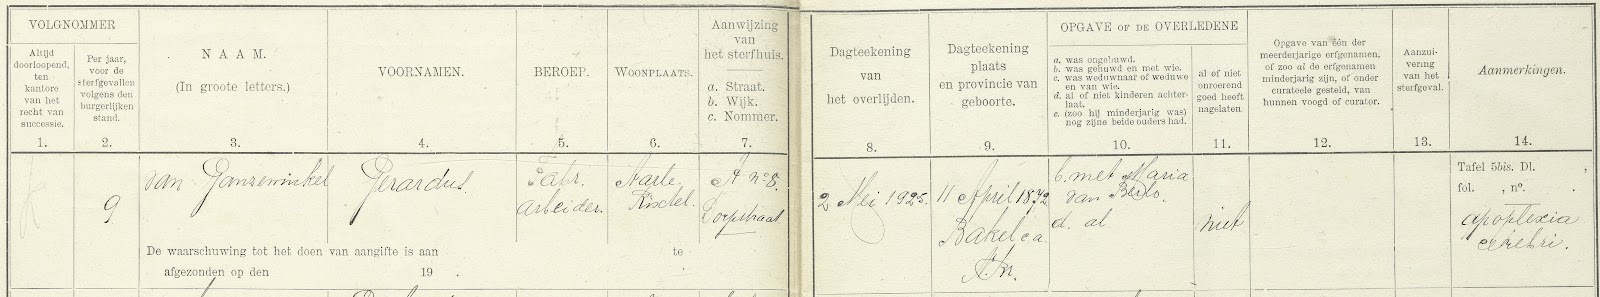 VOLGNOMMER
Altijd
doorloopend,
ten
kantore
van het
recht van
successie.
1.
Per jaar,
voor de
sterfgevallen
volgens den
burgerlijken
stand.
2.
NAAM.
(In groote letters.)
3.
VOORNAMEN.
4.
BEROEP.
5.
WOONPLAATS.
6.
Aanwijzing
van
het sterfhuis.
a. Straat.
b. Wijk.
c. Nommer.
7.
Dagteekening
van
het overlijden.
8.
Dagteekening
plaats
en provincie van
geboorte.
9.
OPGAVE OF DE OVERLEDENE
a. was ongehuwd.
b. was gehuwd en met wie.
c. was weduwnaar of weduwe
en van wie.
d. al of niet kinderen achter-
laat.
e. (zoo hij minderjarig was)
nog zijne beide ouders had.
10.
al of niet
onroerend
goed heeft
nagelaten.
11.
Opgave van één der
meerderjarige erfgenamen,
of zoo al de erfgenamen
minderjarig zijn, of onder
curateele gesteld, van
hunnen voogd of curator.
12.
Aanzui-
vering
van het
sterfgeval.
13.
Aanmerkingen.
14.
9
van Ganzewinkel
Gerardus.
Fabr.
arbeider.
Aarle
Rixtel.
A no 8.
Dorpstraat
2 Mei 1925.
11 April 1872
Bakel ca
b. met Maria
van Berlo.
d. al
niet
Tafel 5bis. Dl. ,
fol. , no. .
apoplexia
cerebri.
De waarschuwing tot het doen van aangifte is aan te
afgezonden op den 19 .